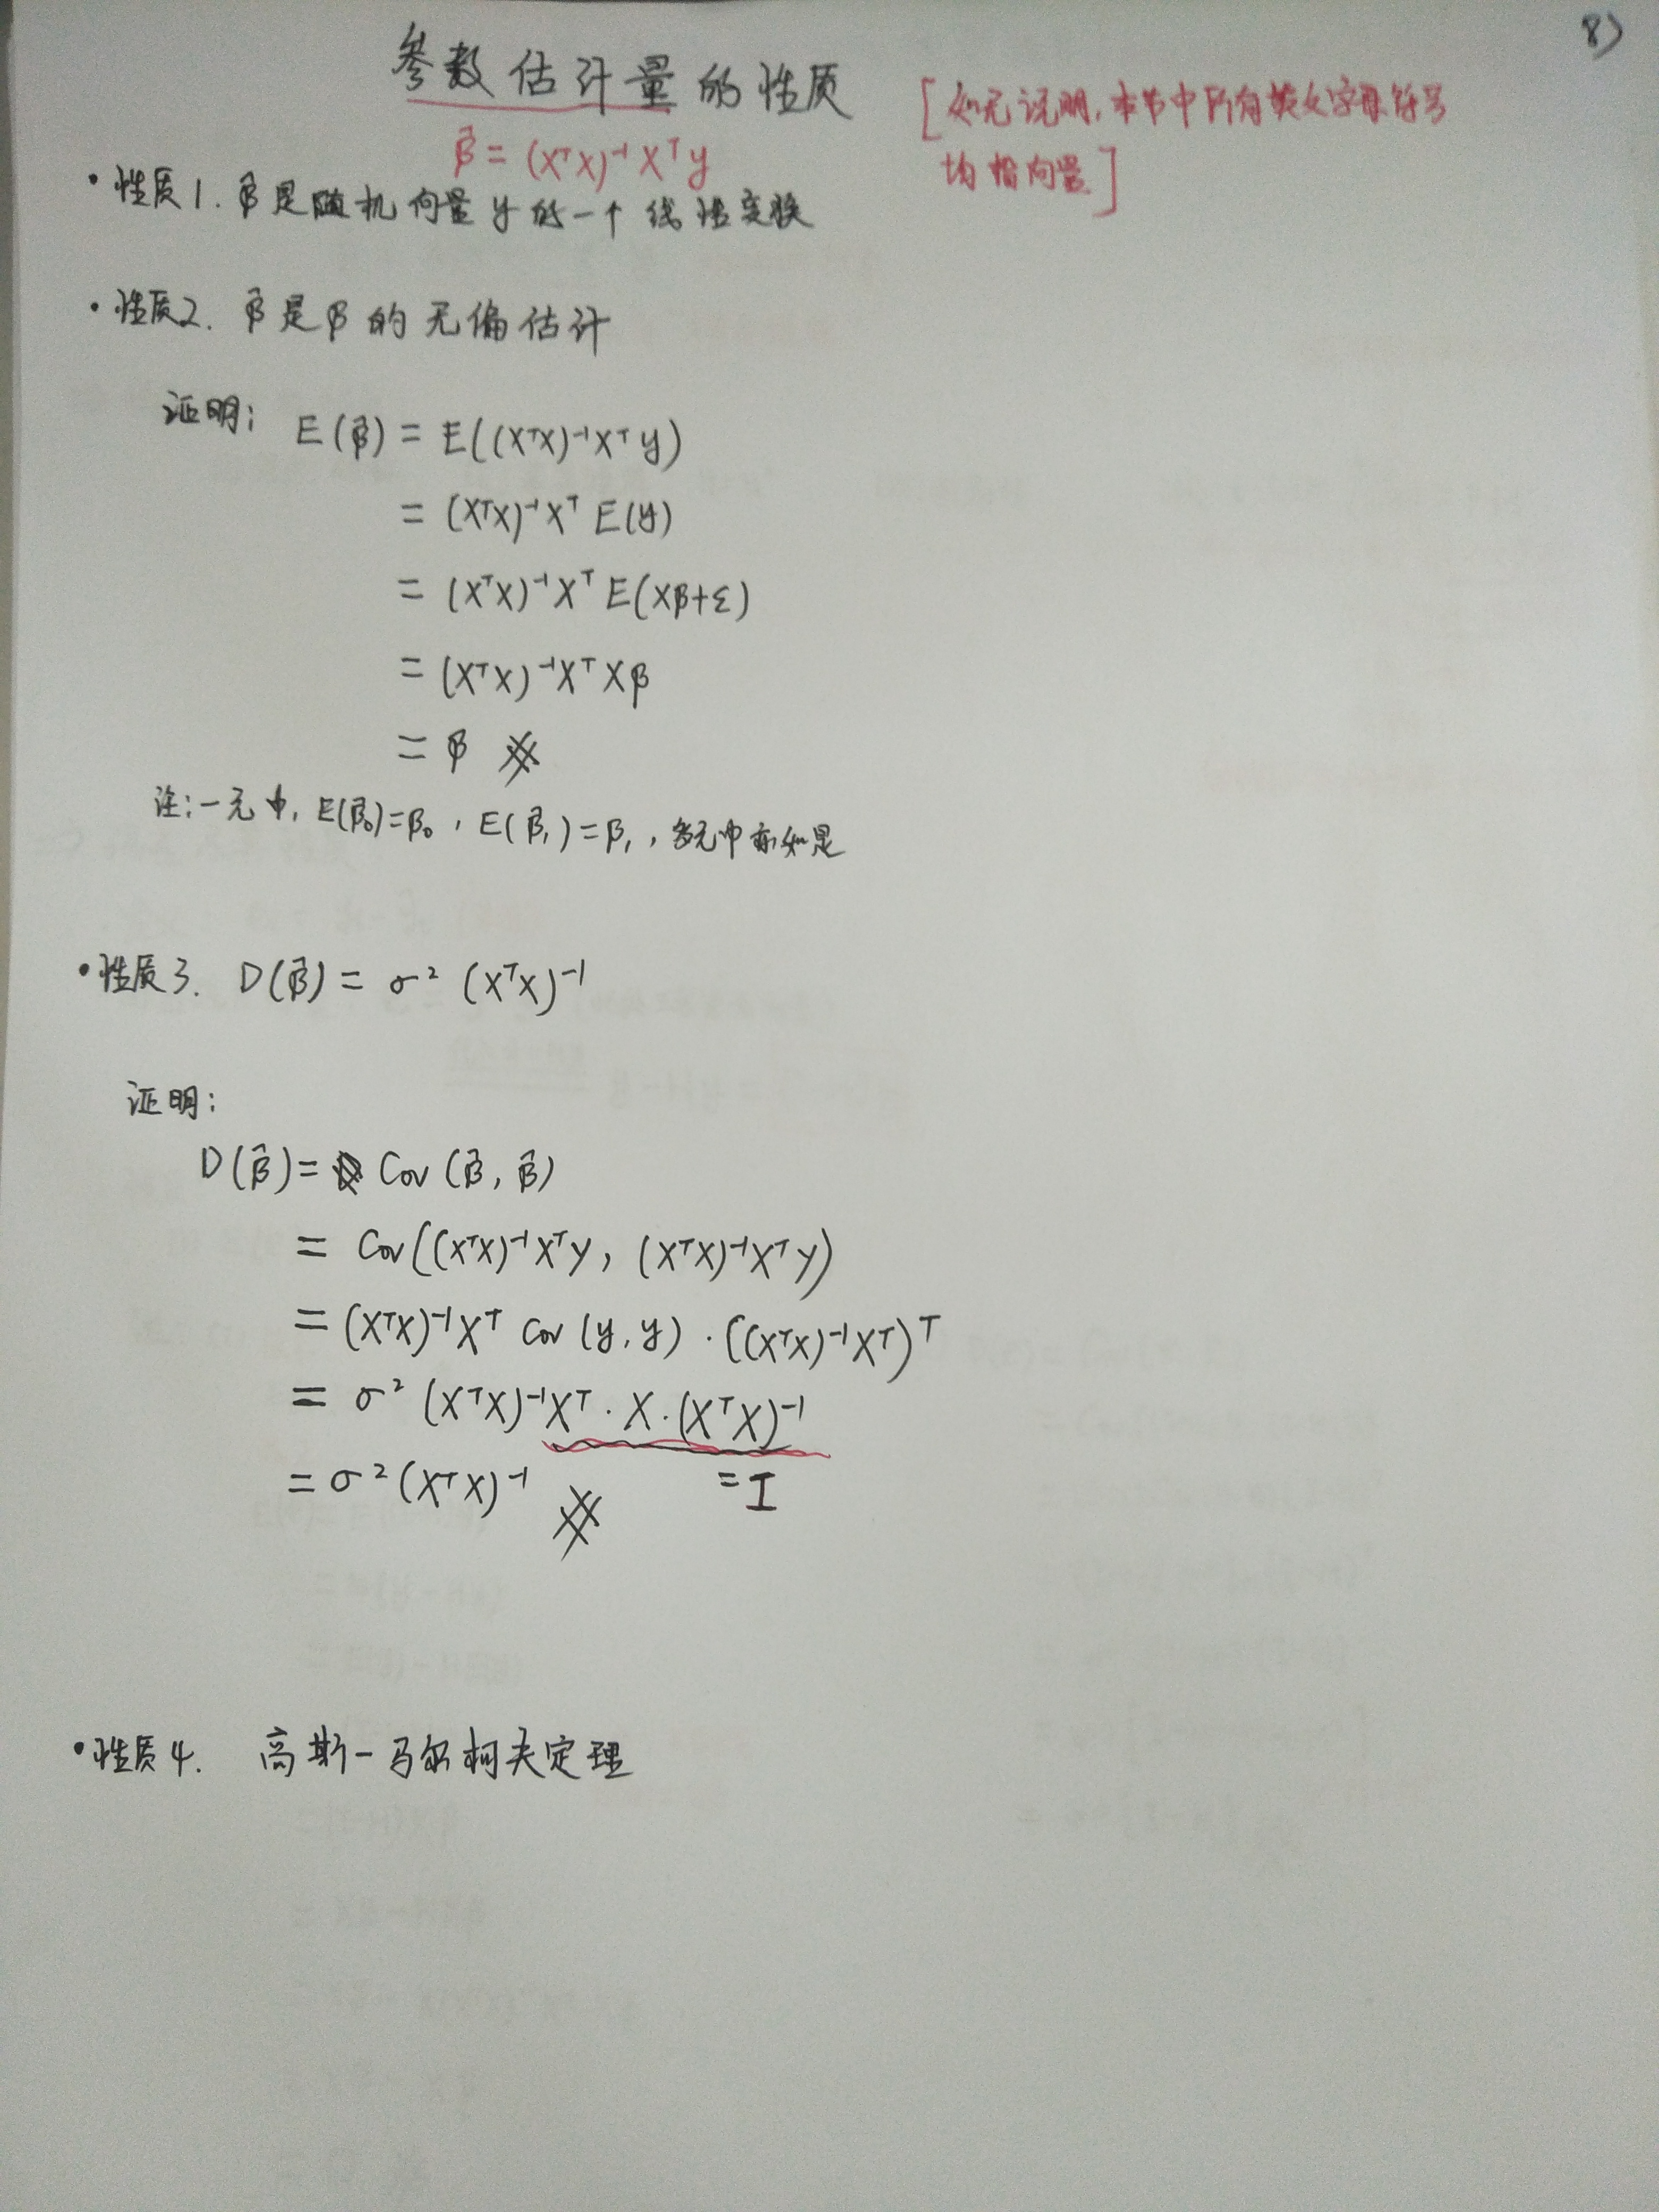 8)
参数估计量的性质
[如无说明,本节中所有英文字母符号
均指向量]
β̂ = (XᵀX)⁻¹Xᵀy
·性质1. β̂是随机向量y的一个线性变换
·性质2. β̂是β的无偏估计
证明: E(β̂) = E((XᵀX)⁻¹Xᵀy)
= (XᵀX)⁻¹Xᵀ E(y)
= (XᵀX)⁻¹Xᵀ E(Xβ+ε)
= (XᵀX)⁻¹XᵀXβ
= β #
注:一元中, E(β̂₀)=β₀, E(β̂₁)=β₁, 多元中亦如是
·性质3. D(β̂) = σ² (XᵀX)⁻¹
证明:
D(β̂) = Cov(β̂, β̂)
= Cov((XᵀX)⁻¹Xᵀy, (XᵀX)⁻¹Xᵀy)
= (XᵀX)⁻¹Xᵀ Cov(y,y)·((XᵀX)⁻¹Xᵀ)ᵀ
= σ² (XᵀX)⁻¹Xᵀ·X·(XᵀX)⁻¹
= σ²(XᵀX)⁻¹ # =I
·性质4. 高斯-马尔柯夫定理